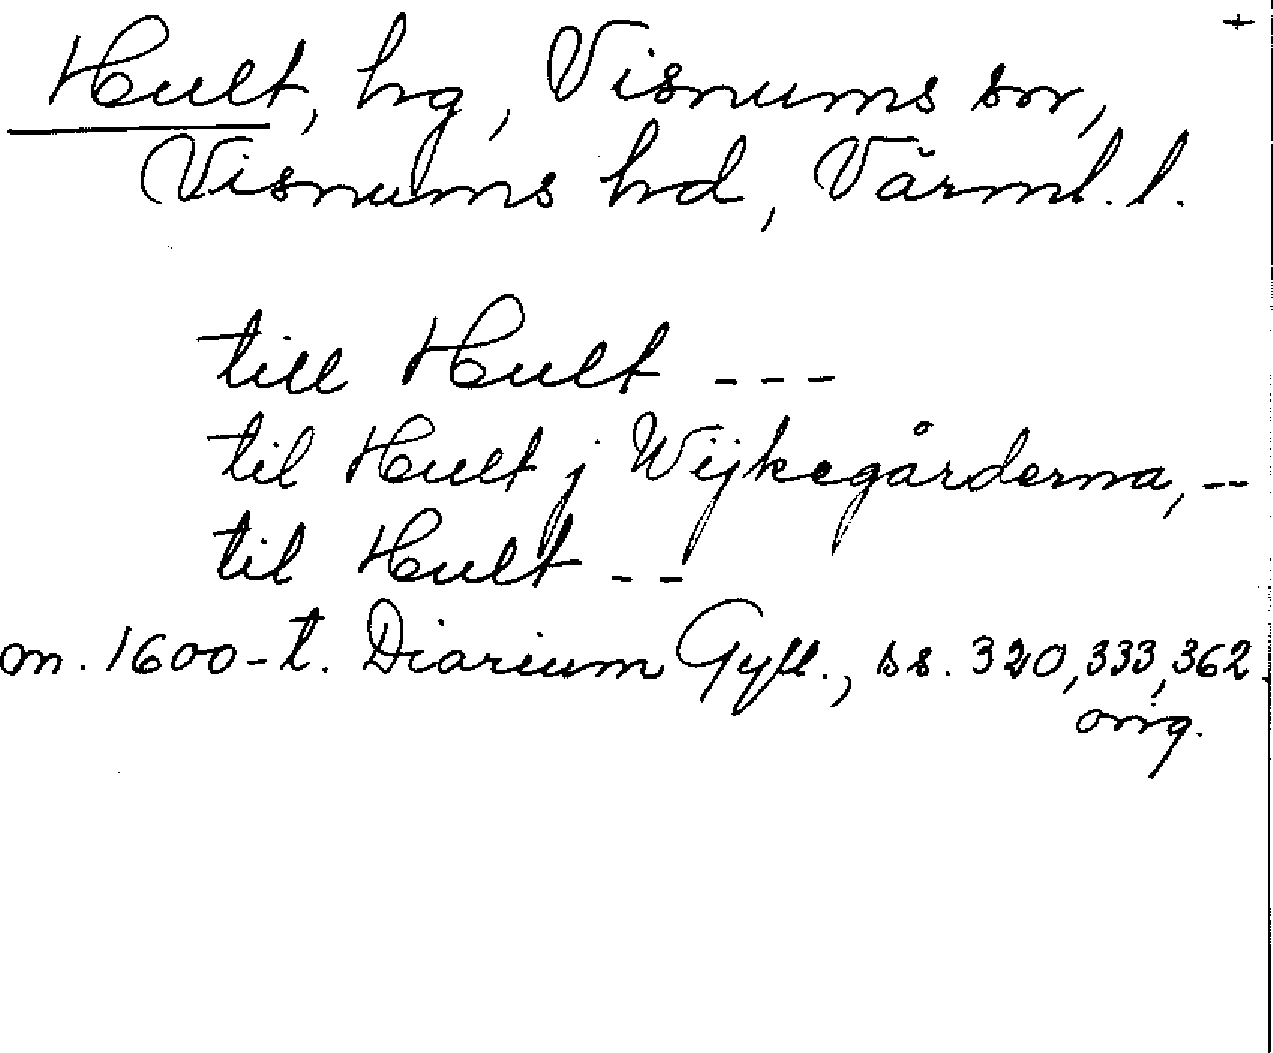 +
Hult, hg, Visnums sn,
Visnums hd, Värml. l.
till Hult ---
til Hult j Wijkegårderna, --
til Hult --
m. 1600-t. Diarium Gyll., ss. 320, 333, 362.
orig.